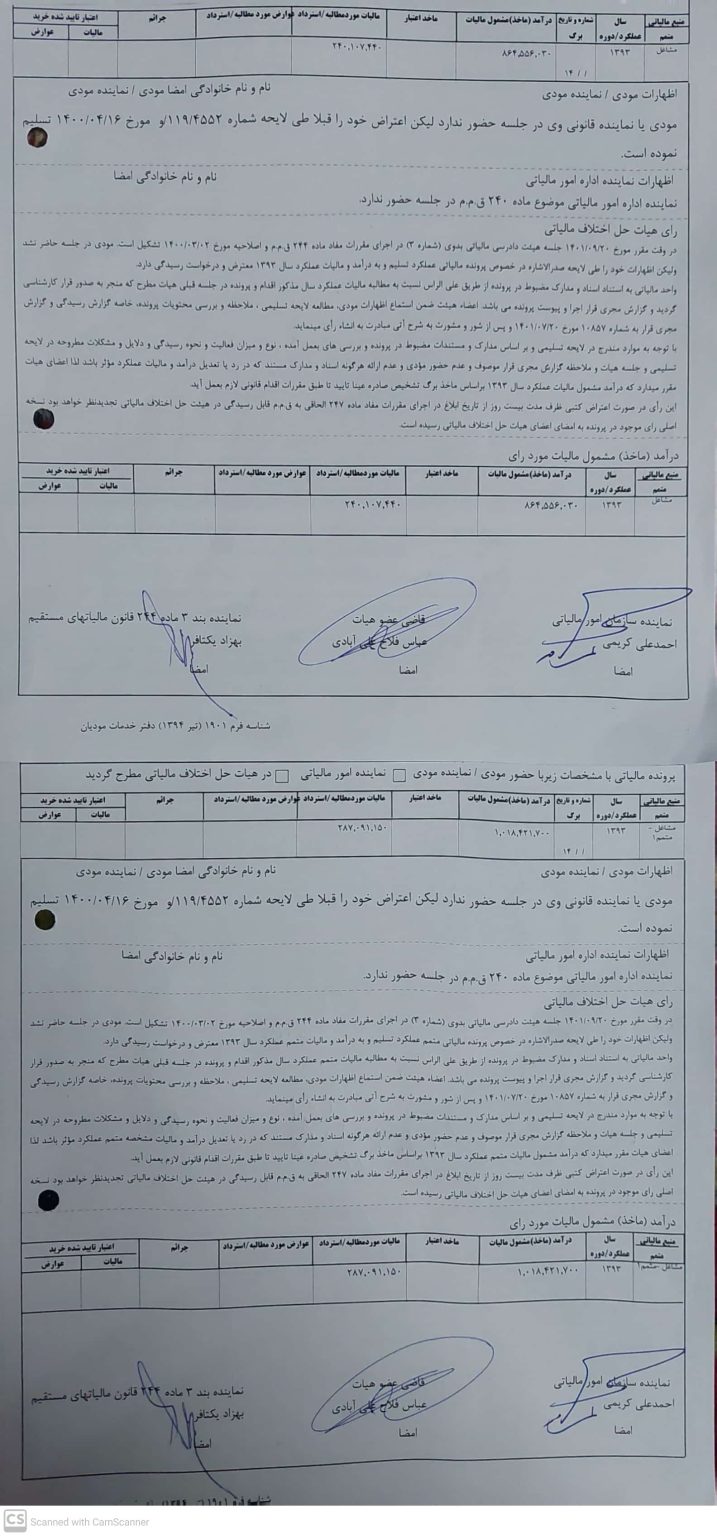 منبع مالیاتی	سال	شماره و تاریخ	درآمد (ماخذ)مشمول مالیات	ماخذ اعتبار	مالیات موردمطالبه/استرداد	عوارض مورد مطالبه/استرداد	جرائم	اعتبار تایید شده خرید
متمم	عملکرد/دوره	برگ	مالیات	عوارض
مشاغل	۱۳۹۳	۸۶۴,۵۵۶,۰۳۰	۲۴۰,۱۰۷,۴۴۰
۱۴ / /
اظهارات مودی / نماینده مودی	نام و نام خانوادگی امضا مودی / نماینده مودی
مودی یا نماینده قانونی وی در جلسه حضور ندارد لیکن اعتراض خود را قبلا طی لایحه شماره ۱۱۹/۴۵۵۲/و مورخ ۱۴۰۰/۰۴/۱۶ تسلیم
نموده است.
اظهارات نماینده اداره امور مالیاتی	نام و نام خانوادگی امضا
نماینده اداره امور مالیاتی موضوع ماده ۲۴۰ ق.م.م در جلسه حضور ندارد.
رای هیات حل اختلاف مالیاتی
در وقت مقرر مورخ ۱۴۰۱/۰۹/۲۰ جلسه هیئت دادرسی مالیاتی بدوی (شماره ۳) در اجرای مقررات مفاد ماده ۲۴۴ ق.م.م و اصلاحیه مورخ ۱۴۰۰/۰۳/۰۲ تشکیل است. مودی در جلسه حاضر نشد
ولیکن اظهارات خود را طی لایحه صدرالاشاره در خصوص پرونده مالیاتی عملکرد تسلیم و به درآمد و مالیات عملکرد سال ۱۳۹۳ معترض و درخواست رسیدگی دارد.
واحد مالیاتی به استناد اسناد و مدارک مضبوط در پرونده از طریق علی الراس نسبت به مطالبه مالیات عملکرد سال مذکور اقدام و پرونده در جلسه قبلی هیات مطرح که منجر به صدور قرار کارشناسی
گردید و گزارش مجری قرار اجرا و پیوست پرونده می باشد. اعضاء هیئت ضمن استماع اظهارات مودی، مطالعه لایحه تسلیمی ، ملاحظه و بررسی محتویات پرونده، خاصه گزارش رسیدگی و گزارش
مجری قرار به شماره ۱۰۸۵۷ مورخ ۱۴۰۱/۰۷/۲۰ و پس از شور و مشورت به شرح آتی مبادرت به انشاء رأی مینماید.
با توجه به موارد مندرج در لایحه تسلیمی و بر اساس مدارک و مستندات مضبوط در پرونده و بررسی های بعمل آمده ، نوع و میزان فعالیت و نحوه رسیدگی و دلایل و مشکلات مطروحه در لایحه
تسلیمی و جلسه هیات و ملاحظه گزارش مجری قرار موصوف و عدم حضور مؤدی و عدم ارائه هرگونه اسناد و مدارک مستند که در رد یا تعدیل درآمد و مالیات عملکرد مؤثر باشد لذا اعضای هیات
مقرر میدارد که درآمد مشمول مالیات عملکرد سال ۱۳۹۳ براساس ماخذ برگ تشخیص صادره عینا تایید تا طبق مقررات اقدام قانونی لازم بعمل آید.
این رأی در صورت اعتراض کتبی ظرف مدت بیست روز از تاریخ ابلاغ در اجرای مقررات مفاد ماده ۲۴۷ الحاقی به ق.م.م قابل رسیدگی در هیئت حل اختلاف مالیاتی تجدیدنظر خواهد بود نسخه
اصلی رای موجود در پرونده به امضای اعضای هیات حل اختلاف مالیاتی رسیده است.
درآمد (ماخذ) مشمول مالیات مورد رای
منبع مالیاتی	سال	درآمد (ماخذ)مشمول مالیات	ماخذ اعتبار	مالیات موردمطالبه/استرداد	عوارض مورد مطالبه/استرداد	جرائم	اعتبار تایید شده خرید
متمم	عملکرد/دوره	مالیات	عوارض
مشاغل	۱۳۹۳	۸۶۴,۵۵۶,۰۳۰	۲۴۰,۱۰۷,۴۴۰
نماینده سازمان امور مالیاتی	قاضی عضو هیات	نماینده بند ۳ ماده ۲۴۴ قانون مالیاتهای مستقیم
احمدعلی کریمی	عباس فلاح علی آبادی	بهزاد یکتافر
امضا	امضا	امضا
شناسه فرم ۱۹۰۱ (تیر ۱۳۹۴) دفتر خدمات مودیان
پرونده مالیاتی با مشخصات زیربا حضور مودی / نماینده مودی	نماینده امور مالیاتی	در هیات حل اختلاف مالیاتی مطرح گردید
منبع مالیاتی	سال	شماره و تاریخ	درآمد (ماخذ)مشمول مالیات	ماخذ اعتبار	مالیات موردمطالبه/استرداد	عوارض مورد مطالبه/استرداد	جرائم	اعتبار تایید شده خرید
متمم	عملکرد/دوره	برگ	مالیات	عوارض
مشاغل -	۱۳۹۳	۱,۰۱۸,۴۲۱,۷۰۰	۲۸۷,۰۹۱,۱۵۰
متمم۱	۱۴ / /
اظهارات مودی / نماینده مودی	نام و نام خانوادگی امضا مودی / نماینده مودی
مودی یا نماینده قانونی وی در جلسه حضور ندارد لیکن اعتراض خود را قبلا طی لایحه شماره ۱۱۹/۴۵۵۲/و مورخ ۱۴۰۰/۰۴/۱۶ تسلیم
نموده است.
اظهارات نماینده اداره امور مالیاتی	نام و نام خانوادگی امضا
نماینده اداره امور مالیاتی موضوع ماده ۲۴۰ ق.م.م در جلسه حضور ندارد.
رای هیات حل اختلاف مالیاتی
در وقت مقرر مورخ ۱۴۰۱/۰۹/۲۰ جلسه هیئت دادرسی مالیاتی بدوی (شماره ۳) در اجرای مقررات مفاد ماده ۲۴۴ ق.م.م و اصلاحیه مورخ ۱۴۰۰/۰۳/۰۲ تشکیل است. مودی در جلسه حاضر نشد
ولیکن اظهارات خود را طی لایحه صدرالاشاره در خصوص پرونده مالیاتی متمم عملکرد تسلیم و به درآمد و مالیات متمم عملکرد سال ۱۳۹۳ معترض و درخواست رسیدگی دارد.
واحد مالیاتی به استناد اسناد و مدارک مضبوط در پرونده از طریق علی الراس نسبت به مطالبه مالیات متمم عملکرد سال مذکور اقدام و پرونده در جلسه قبلی هیات مطرح که منجر به صدور قرار
کارشناسی گردید و گزارش مجری قرار اجرا و پیوست پرونده می باشد. اعضاء هیئت ضمن استماع اظهارات مودی، مطالعه لایحه تسلیمی ، ملاحظه و بررسی محتویات پرونده، خاصه گزارش رسیدگی
و گزارش مجری قرار به شماره ۱۰۸۵۷ مورخ ۱۴۰۱/۰۷/۲۰ و پس از شور و مشورت به شرح آتی مبادرت به انشاء رأی مینماید.
با توجه به موارد مندرج در لایحه تسلیمی و بر اساس مدارک و مستندات مضبوط در پرونده و بررسی های بعمل آمده ، نوع و میزان فعالیت و نحوه رسیدگی و دلایل و مشکلات مطروحه در لایحه
تسلیمی و جلسه هیات و ملاحظه گزارش مجری قرار موصوف و عدم حضور مؤدی و عدم ارائه هرگونه اسناد و مدارک مستند که در رد یا تعدیل درآمد و مالیات مشخصه متمم عملکرد مؤثر باشد لذا
اعضای هیات مقرر میدارد که درآمد مشمول مالیات متمم عملکرد سال ۱۳۹۳ براساس ماخذ برگ تشخیص صادره عینا تایید تا طبق مقررات اقدام قانونی لازم بعمل آید.
این رأی در صورت اعتراض کتبی ظرف مدت بیست روز از تاریخ ابلاغ در اجرای مقررات مفاد ماده ۲۴۷ الحاقی به ق.م.م قابل رسیدگی در هیئت حل اختلاف مالیاتی تجدیدنظر خواهد بود نسخه
اصلی رای موجود در پرونده به امضای اعضای هیات حل اختلاف مالیاتی رسیده است.
درآمد (ماخذ) مشمول مالیات مورد رای
منبع مالیاتی	سال	درآمد (ماخذ)مشمول مالیات	ماخذ اعتبار	مالیات موردمطالبه/استرداد	عوارض مورد مطالبه/استرداد	جرائم	اعتبار تایید شده خرید
متمم	عملکرد/دوره	مالیات	عوارض
مشاغل -متمم۱	۱۳۹۳	۱,۰۱۸,۴۲۱,۷۰۰	۲۸۷,۰۹۱,۱۵۰
نماینده سازمان امور مالیاتی	قاضی عضو هیات	نماینده بند ۳ ماده ۲۴۴ قانون مالیاتهای مستقیم
احمدعلی کریمی	عباس فلاح علی آبادی	بهزاد یکتافر
امضا	امضا	امضا
شناسه فرم ۱۹۰۱
CS Scanned with CamScanner